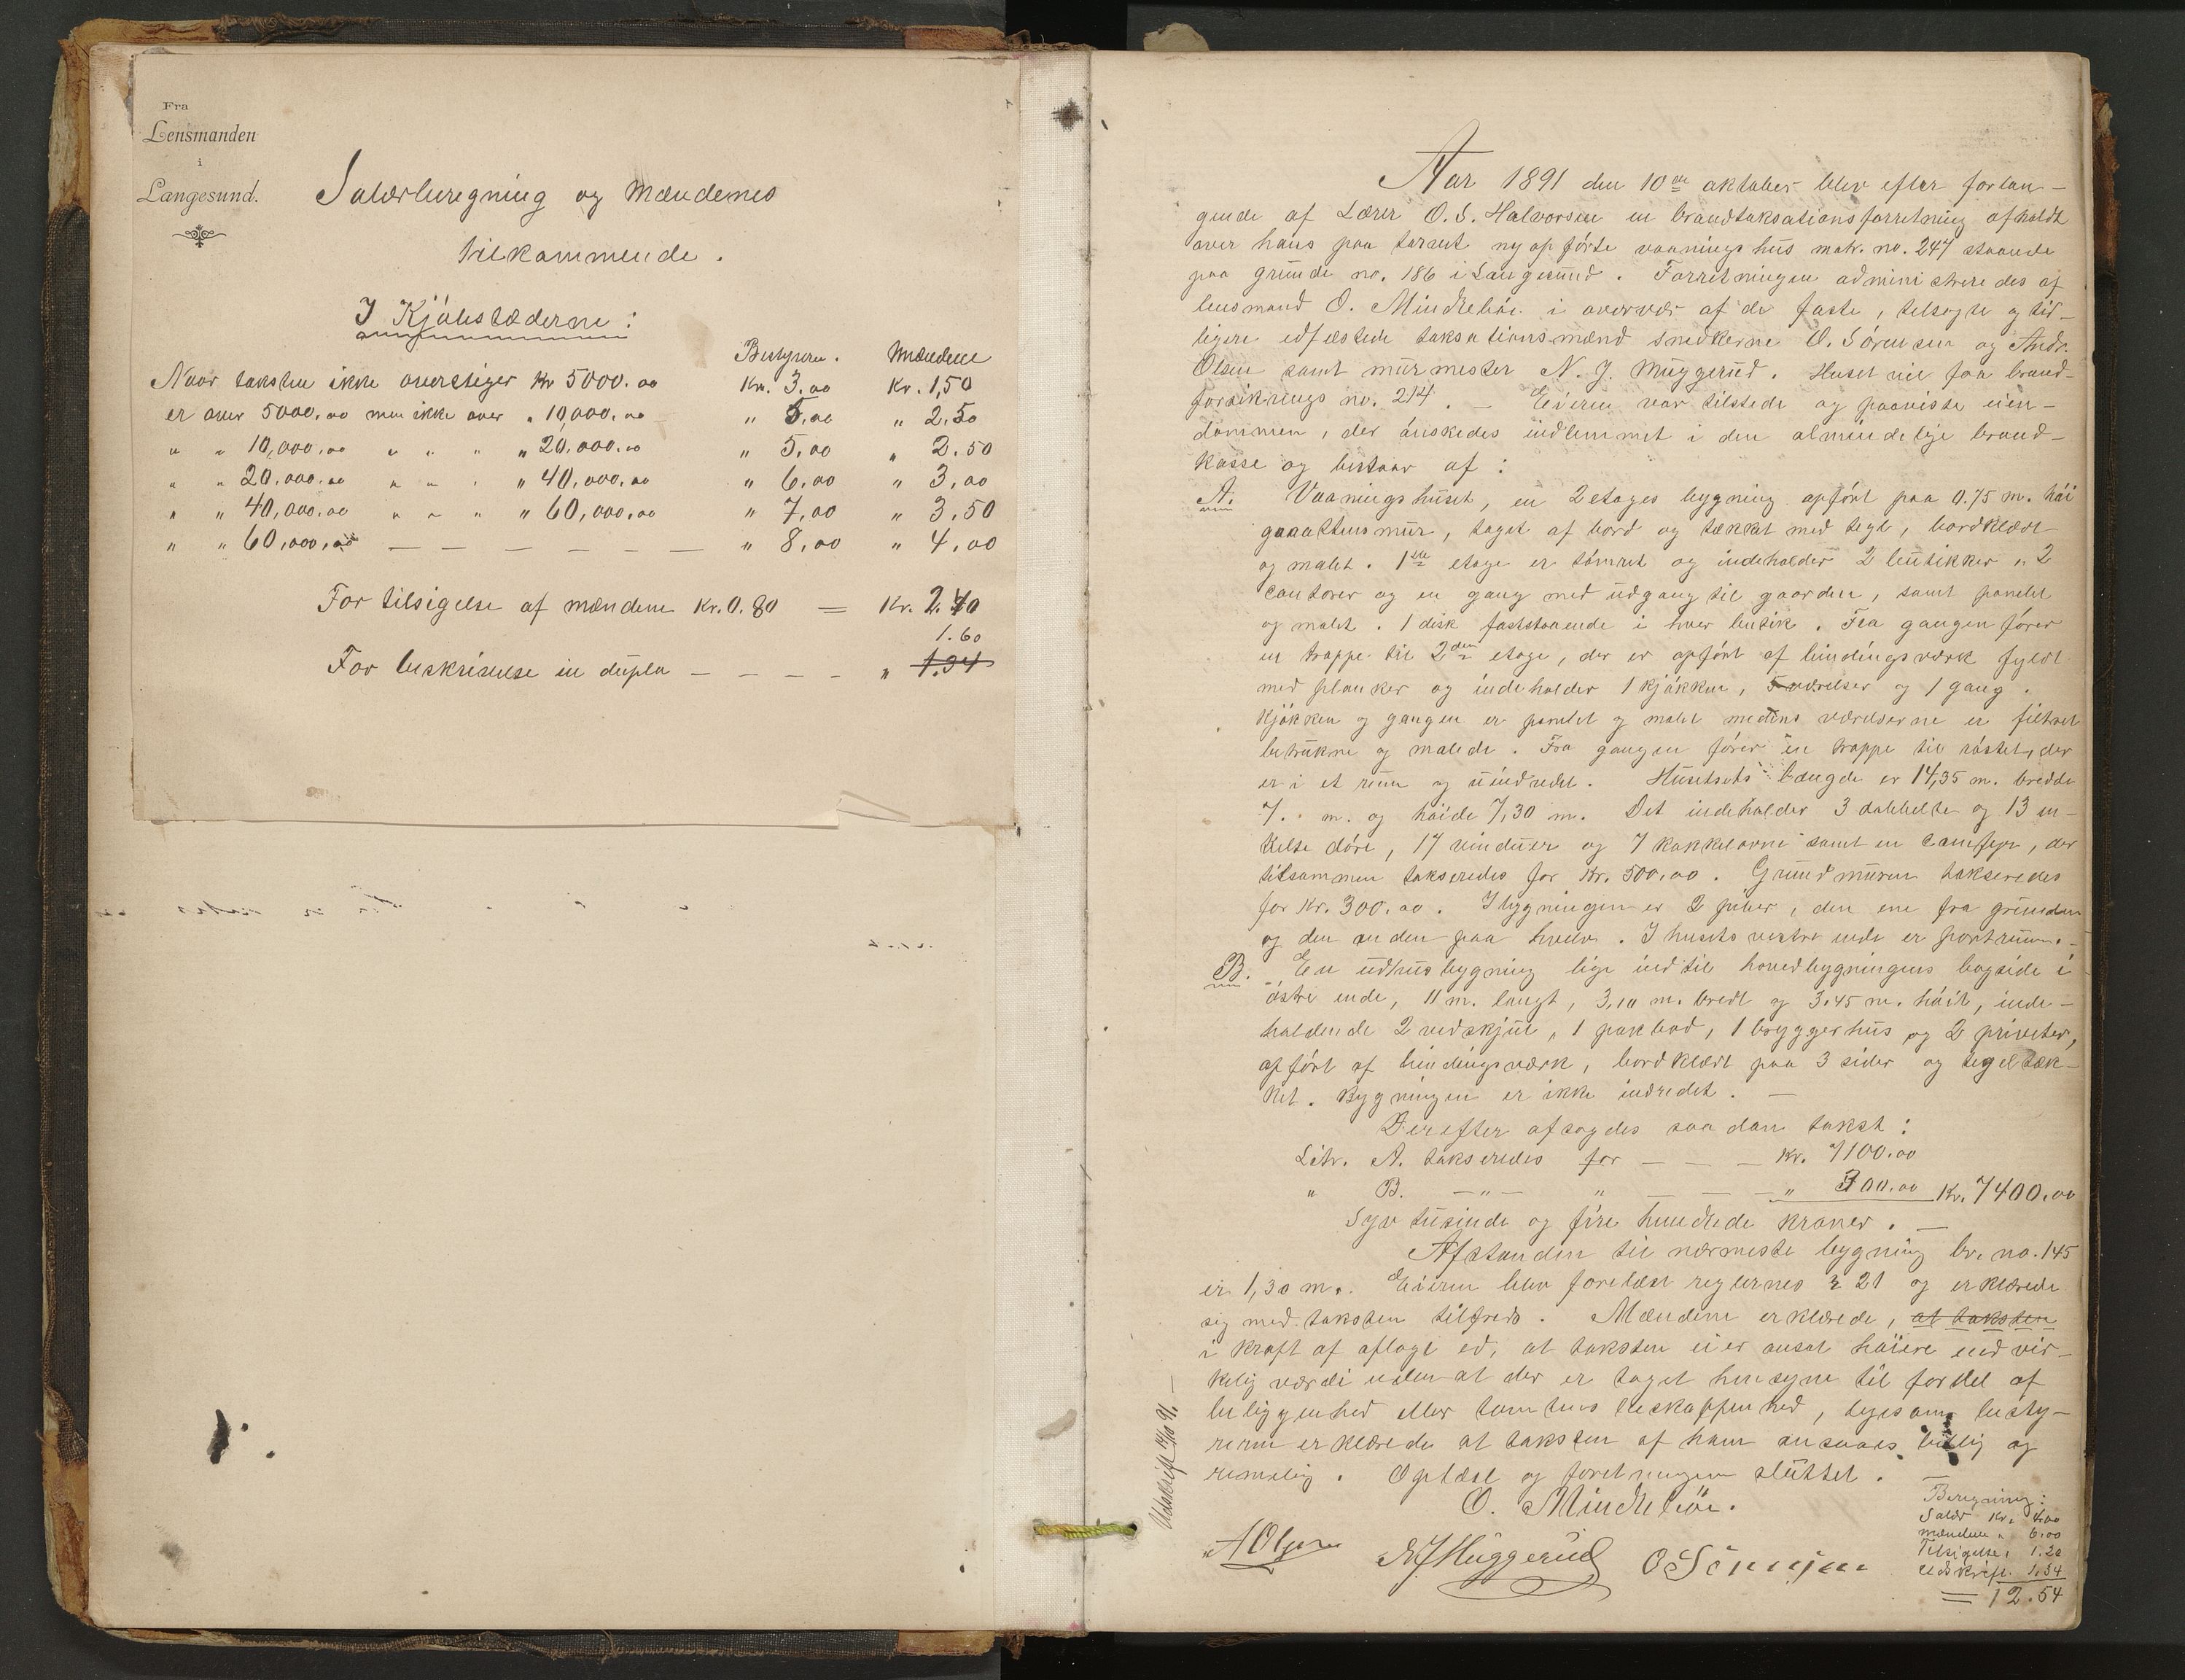 Fra
Lensmanden
i
Langesund.
Salærberegning og mændenes
tilkommende.
I Kjøbstæderne:
Bestyreren. Mændene
Naar taksten ikke overstiger Kr 5000.00 Kr. 3.00 Kr. 1,50
er over 5000.00 men ikke over " 10,000.00 " 5.00 " 2.50
" " 10,000.00 " " " " 20.000.00 " 5.00 " 2.50
" " 20.000.00 " " " " 40,000.00 " 6.00 " 3.00
" " 40,000.00 " " " " 60,000.00 " 7.00 " 3.50
" " 60,000,00 — — — — — — " 8,00 " 4.00
For tilsigelse af mændene Kr. 0.80 = Kr. 2.40
1.60
For beskrivelse in dupla — — — — " 1.34
Aar 1891 den 10de oktober blev efter forlan-
gende af Lærer O. S. Halvorsen en brandtaksationsforretning afholdt
over hans paa tomt ny opførte vaaningshus matr. no. 247 staaende
paa grund no. 186 i Langesund. Forretningen administreredes af
lensmand O. Mindrebøe i overvær af de faste, tilsagte og tid-
ligere edfæstede taksationsmænd snedkerne O. Sørensen og Andr.
Olsen samt murmester N. J. Muggerud. Huset vil faa brand-
forsikrings no. 214. — Eieren var tilstede og paaviste eien-
dommen, der ønskedes indlemmet i den almindelige brand-
kasse og bestaar af:
A. Vaaningshuset, en 2 etages bygning opført paa 0.75 m. høi
graastensmur, taget af bord og tækket med tegl, bordklædt
og malet. 1ste etage er tømret og indeholder 2 butikker, 2
contorer og en gang med udgang til gaarden, samt panelet
og malet. 1 disk faststaaende i hver butik. Fra gangen fører
en trappe til 2den etage, der er opført af bindingsværk fyldt
med planker og indeholder 1 kjøkken, 5 værelser og 1 gang.
Kjøkken og gangen er panelet og malet medens værelserne er filtret
betrukne og malede. Fra gangen fører en trappe til røstet, der
er i et rum og uindredet. Husets længde er 14,35 m. bredde
7. m. og høide 7,30 m. Det indeholder 3 dobbelte og 13 en-
kelte døre, 17 vinduer og 7 kakkelovne samt en camfyr, der
tilsammen takseredes for Kr. 500.00. Grundmuren takseredes
for Kr. 300.00. I bygningen er 2 piber, den ene fra grunden
og den anden paa hvelv. I husets vestre ende er portrum.-
B. En udhusbygning lige ind til hovedbygningens bagside i
østre ende, 11 m. langt, 3,10 m. bredt og 3.45 m. høit, inde-
holdende 2 vedskjul, 1 pakbod, 1 bryggerhus og 2 priveter,
opført af bindingsværk, bordklædt paa 3 sider og tegltæk-
ket. Bygningen er ikke indredet. —
Derefter afsagdes saadan takst:
Litr. A. takseredes for — — — Kr. 7100.00
" B. —"— " — — — " 300.00 Kr. 7400.00
Syv tusinde og fire hundrede kroner. —
Afstanden til nærmeste bygning br. no. 145
er 1,30 m. Eieren blev forelæst reglernes § 21 og erklærede
sig med taksten tilfreds. Mændene erklærede, at taksten
i kraft af aflagt ed, at taksten ei er ansat høiere end vir-
kelig værdi uden at der er taget hensyn til fordel af
beliggenhed eller tomtens beskaffenhed, ligesom besty-
reren erklærede at taksten af ham ansaaes billig og
rimelig. Oplæst og forretningen sluttet.
O. Mindrebøe.
A Olsen N J Muggerud O Sörensen
Udskrift 14/10 91. —
Beregning:
Salær Kr. 4.00
mændene " 6.00
Tilsigelse, 1.20
Udskrift. 1.34
= 12.54